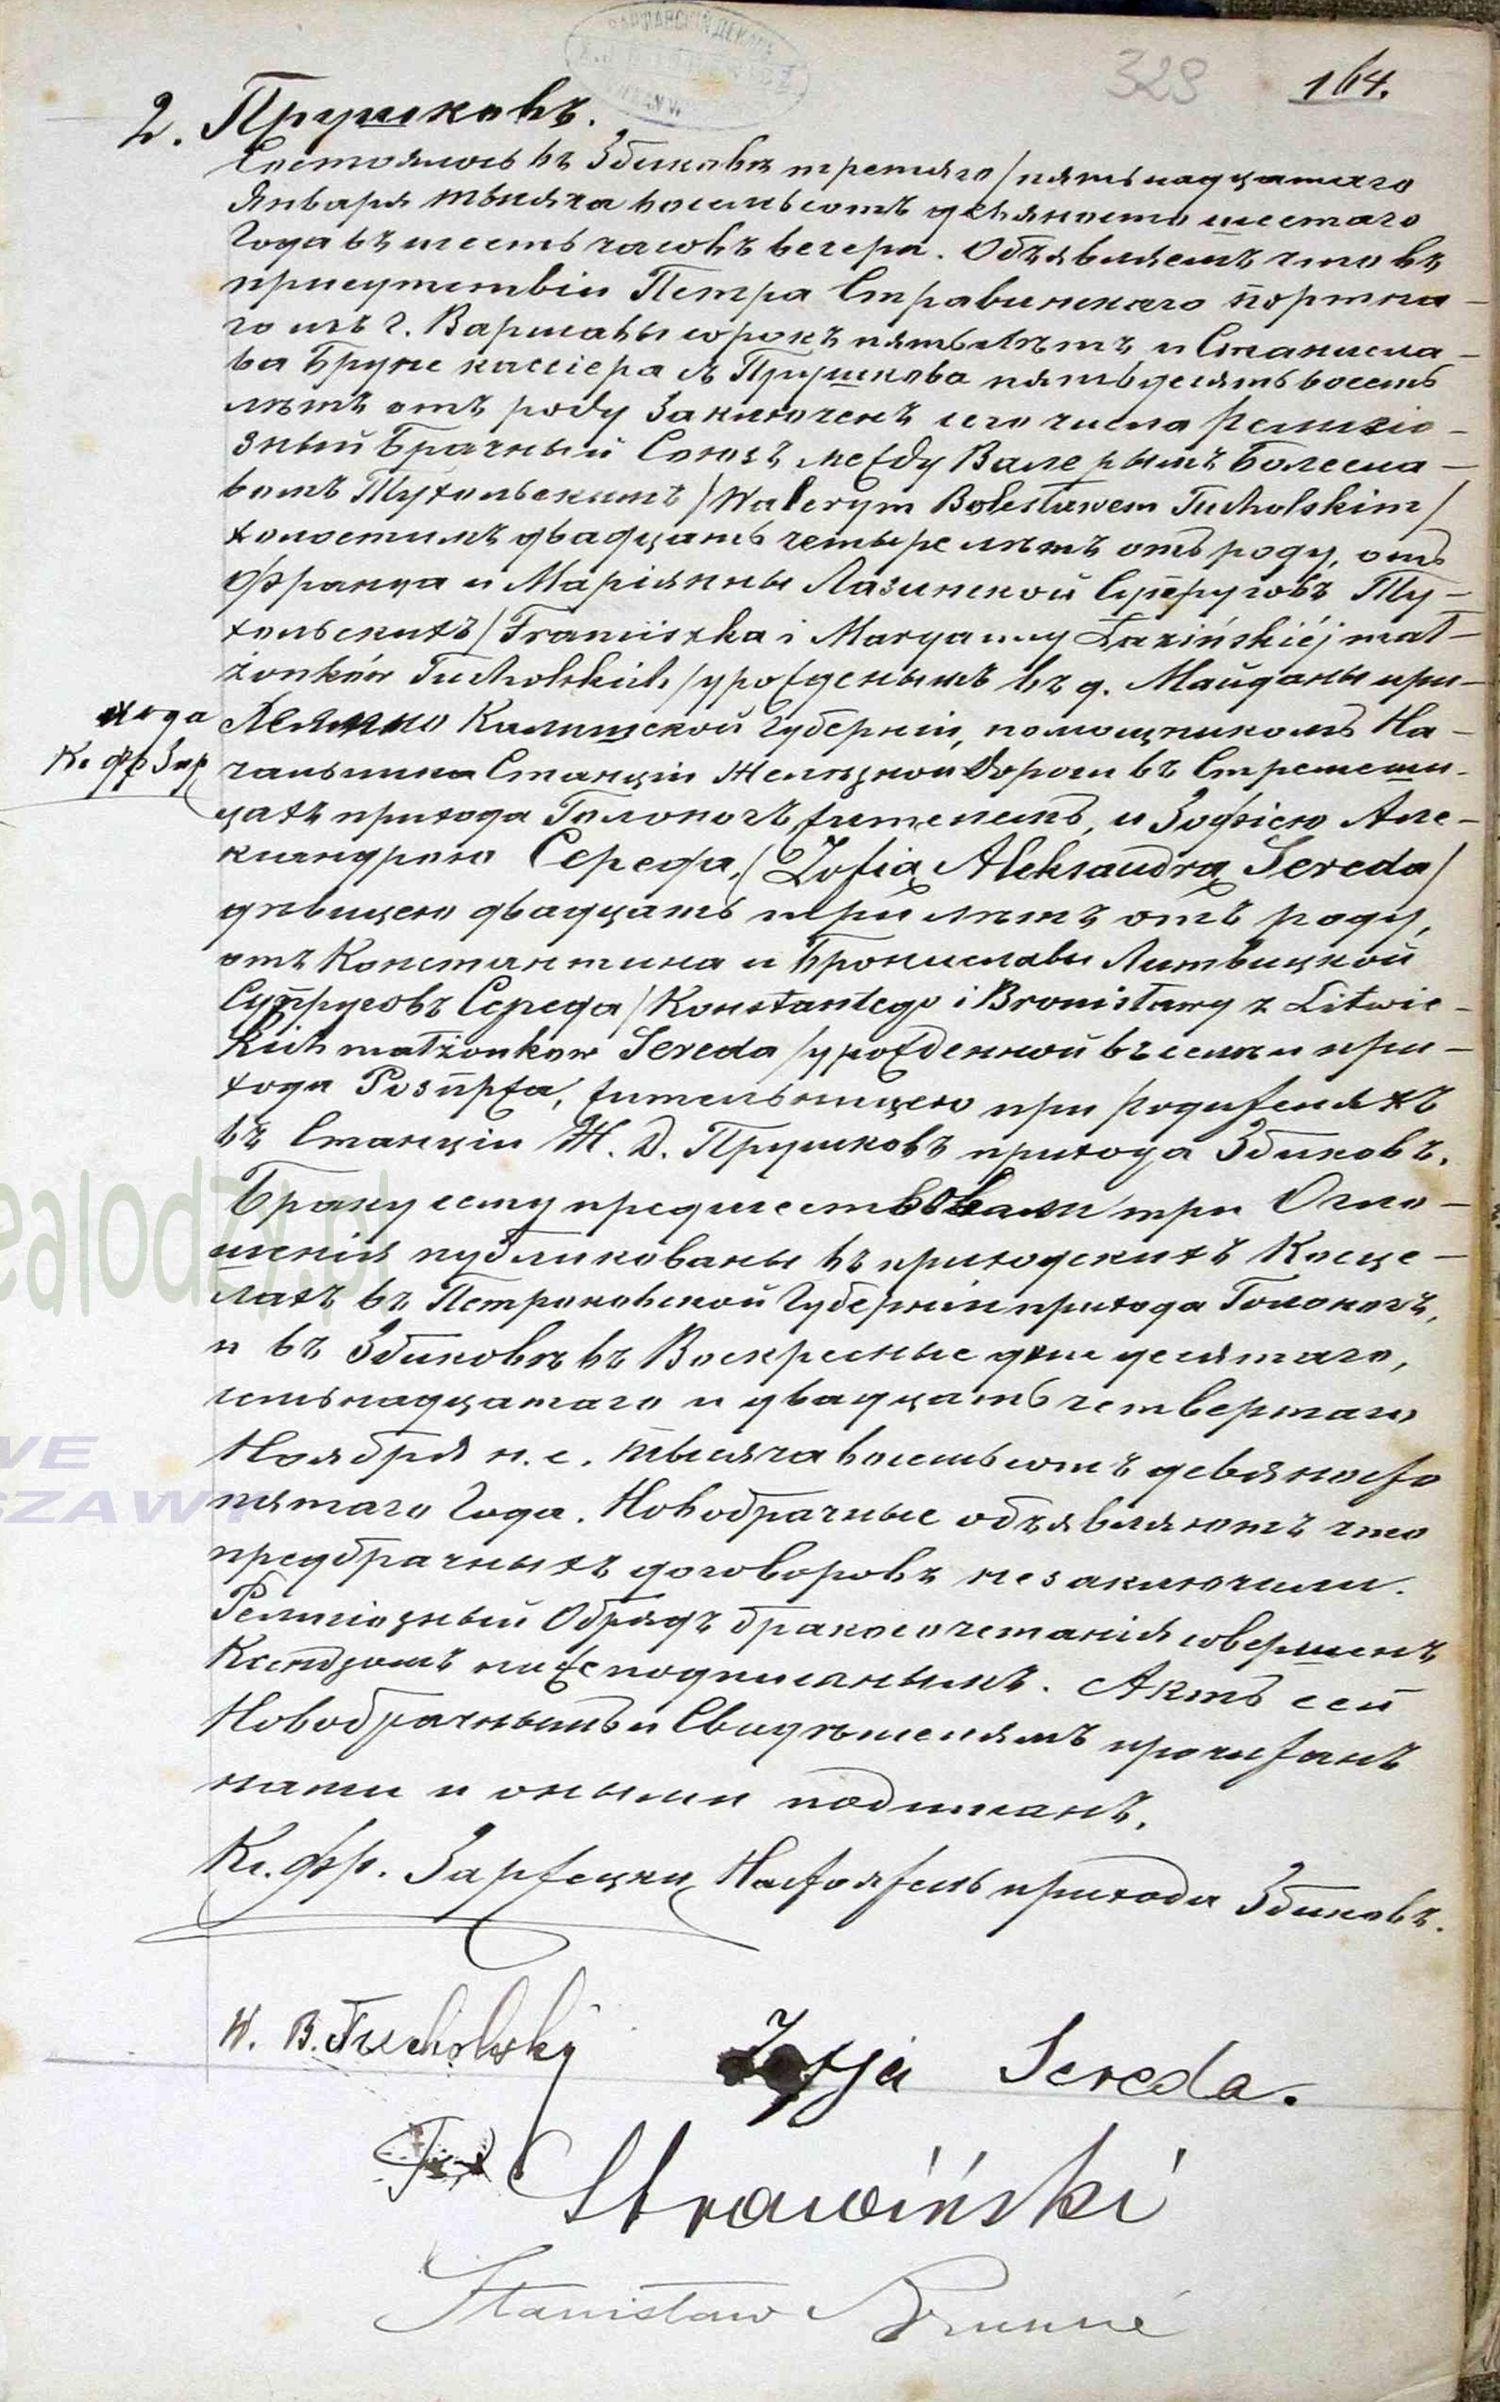 329
164.
2. Прушковъ.
Состоялось въ Збиковѣ третяго/пятьнадцатаго
Января тысяча восемьсотъ девяносто шестаго
Года въ шесть часовъ вечера. Объявляемъ что въ
присутствіи Петра Стравинскаго портна-
го изъ г. Варшавы сорокъ пять лѣтъ и Станисла-
ва Бруне кассіера съ Прушкова пятьдесятъ восемь
лѣтъ отъ роду заключенъ сего числа Религіо-
зный Брачный Союзъ между Валерымъ Болесла-
вомъ Тухольскимъ /Walerym Bolesławem Tucholskim/
холостимъ двадцать четыре лѣтъ отъ роду, отъ
Франца и Маріянны Лазинской Супруговъ Ту-
хольскихъ /Franciszka i Maryanny Łazińskiéj mał-
żonków Tucholskich/ урожденымъ въ д. Майданы при-
хода
Калишской Губерніи, помощникомъ На-
К. Фр Зар
чальника Станціи Желѣзной Дороги въ Стремеши-
цахъ прихода Голоногъ жителемъ, и Зофіею Але-
ксандрою Середа, /Zofią Aleksandrą Sereda/
дѣвицею двадцать три лѣтъ отъ роду,
отъ Константина и Брониславы Литвицкой
Супруговъ Середа /Konstantego i Bronisławy z Litwic-
kich małżonkow Sereda/ урожденной въ селѣ и при-
хода Розпржа, жительницею при родителяхъ
въ Станціи Ж. Д. Прушковъ прихода Збиковъ.
Браку сему предшествовали три Огло-
шенія публикованы въ приходскихъ Косце-
лахъ въ Петроковской Губерніи прихода Голоногъ,
и въ Збиковѣ въ Воскресные дни десятаго,
семьнадцатаго и двадцать четвертаго
Ноября н. с. тысяча восемьсотъ девяносто
пятаго Года. Новобрачные объявляютъ что
предбрачныхъ договоровъ не заключили.
Религіозный Обрядъ бракосочетанія совершенъ
Ксендзомъ нижеподписанымъ. Актъ сей
Новобрачнымъ и Свидѣтелямъ прочитанъ
нами и оными подписанъ.
Кс. Фр. Заржецки Настоятель прихода Збиковъ.
W. B. Tucholsky
Zofja Sereda.
Strawiński
Stanisław Brunné